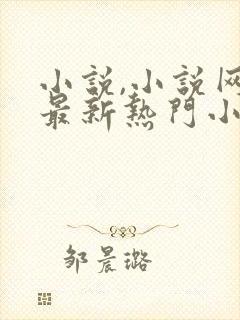 小說,小說网
最新熱門小
邹晨璐